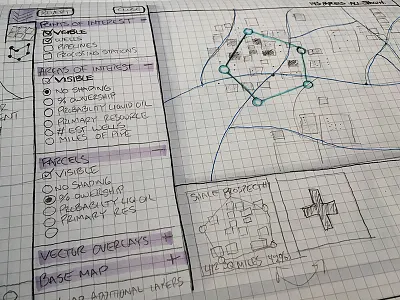 CLOSE
POINTS OF INTEREST -
VISIBLE
WELLS
PIPELINES
PROCESSING STATIONS
AREAS OF INTEREST -
VISIBLE
NO SHADING
% OWNERSHIP
PROBABILITY LIQUID OIL
PRIMARY RESOURCE
# EST WELLS
MILES OF PIPE
PARCELS
VISIBLE
NO SHADING
% OWNERSHIP
PROBABILITY LIQUID OIL
PRIMARY RES
VECTOR OVERLAYS +
BASE MAP +
ADDITIONAL LAYERS
PROSPECT
MILES